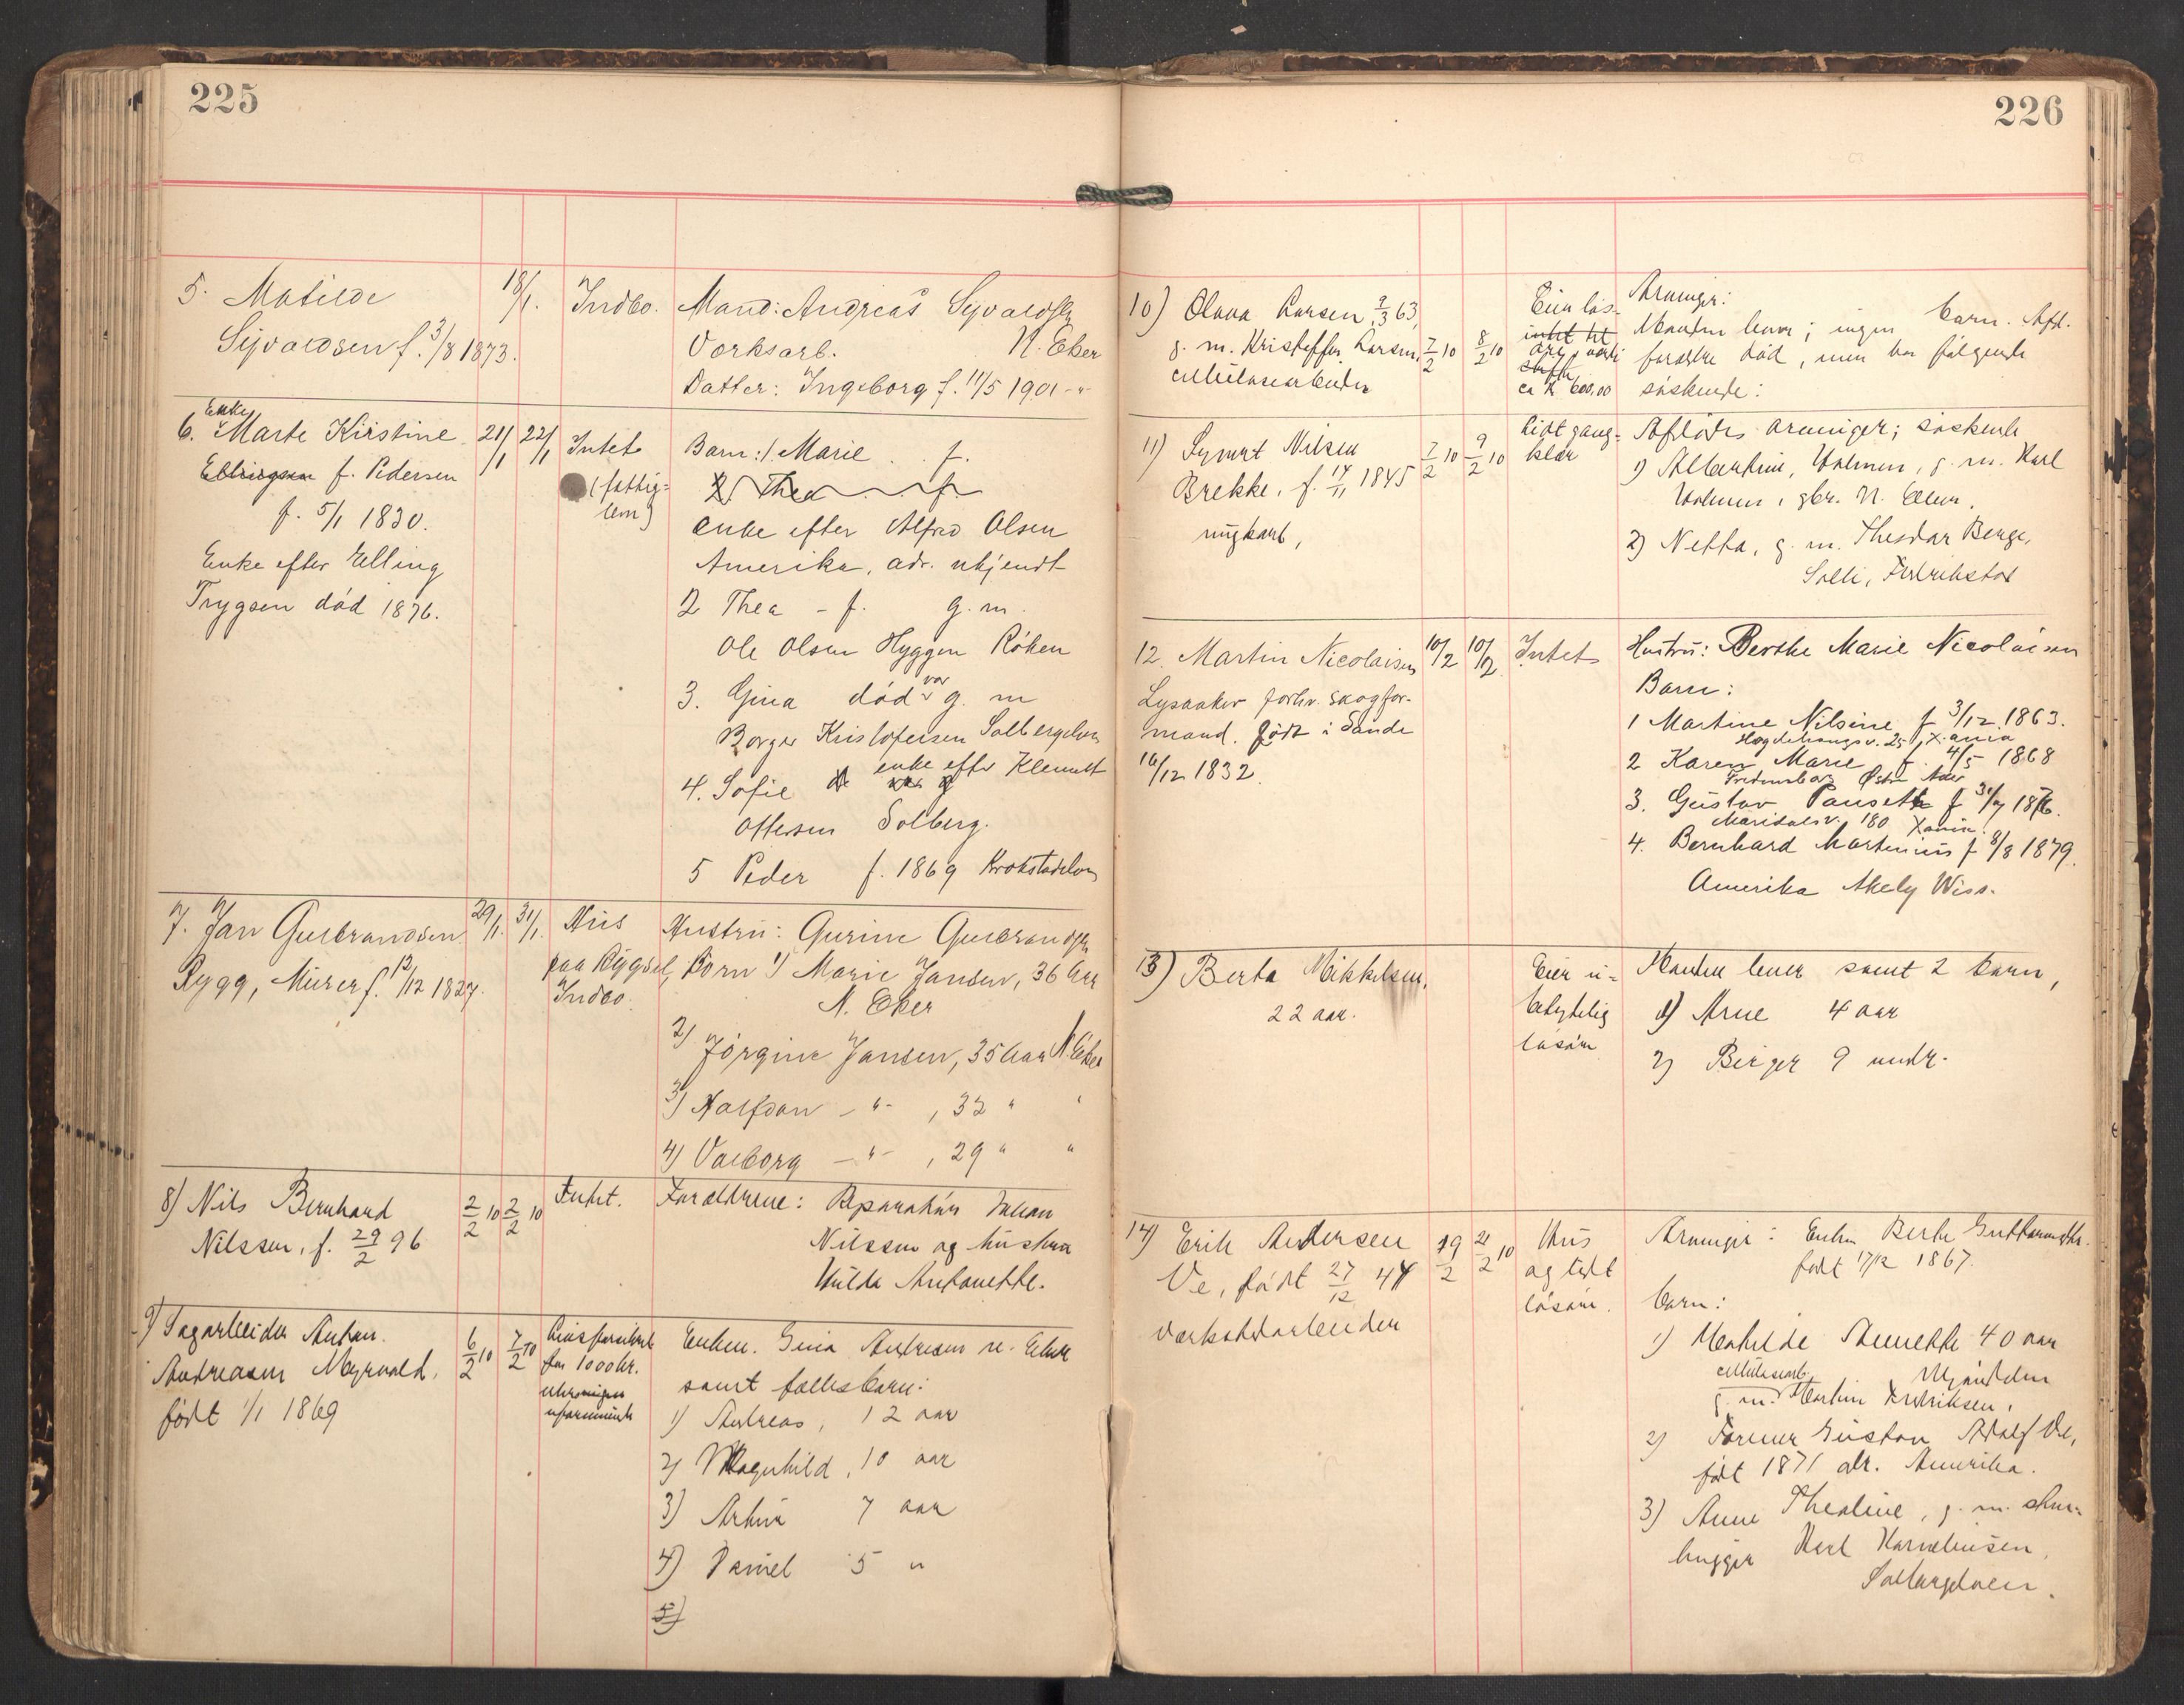 225
5. Matilde
Sijvaldsen f. 3/8 1873.
18/1.
Indbo.
Mand: Andreas Sijvaldsen
Verksarb. N. Eker
Datter: Ingeborg f. 11/5 1901 -"-
Enke
6. Marte Kirstine
Ellingsen f. Pedersen
f. 5/1 1830.
Enke efter Elling
Trygsen død 1876.
21/1
22/1
Intet
(fattig=
lem)
Barn: 1 Marie . . f.
2) Thea . . f
enke efter Alfred Olsen
Amerika, adr. ukjendt
2 Thea - f. g. m.
Ole Olsen Hyggen Røken
3. Gina død var g. m
Borger Kristofersen Solbergelven
4. Sofie enke efter Klemet
Ottersen Solberg.
5 Peder f. 1869 Krokstadelven
7. Jan Gulbrandsen
Rygg, Murer f. 12/12 1827.
29/1.
31/1.
Hus
paa Rygsel,
Indbo
Hustru: Gurine Gulbrandsen
Børn 1) Marie Jansen, 36 Aar
N. Eker
2) Jørgine Jansen, 35 Aar N. Eker
3) Halfdan -"-, 32 " "
4) Valborg -"-, 29 " "
8) Nils Bernhard
Nilssen, f. 29/2 96
2/2 10
2/2 10
Intet.
Forældrene: Reparatør Johan
Nilssen og hustru
Hulda Antonette.
9) Sagarbeider Anton
Andreasen Myrvold,
født 1/1 1869
6/2 10
7/2 10
Livsforsikret
for 1000 kr.
Enken. Gina Andresen n. Eker
samt fællesbarn:
1) Andreas, 12 aar
2) Magnhild, 10 aar
3) Artur 7 aar
4) Daniel 5 "
5)
226
10) Olava Larsen 9/3 63,
g. m. Kristoffer Larsen,
cellulosearbeider
7/2 10
8/2 10
Eien løs-
øre, værdi
ca K 600,00
Arvinger:
Manden lever; ingen barn. Afd.
forældre død, men har følgende
søskende:
11) Syvert Nilsen
Brekke, f. 14/11 1845
ungkarl,
7/2 10
9/2 10
Lidt gang-
klær
Afdødes arvinger; søskende
1) Albertine, Holmen, g. m. Karl
Holmen, gbr. N. Eker.
2) Netta, g. m. Theodor Berge,
Solli, Fredrikstad
12. Martin Nicolaisen
Lysaaker forhv. skogfor-
mand. født i Sande
16/12 1832.
10/2
10/2
Intet
Hustru: Berthe Marie Nicolaisen
Barn:
1 Martine Nilsine f 3/12 1863.
Hegdehaugsv. 25, X.ania
2 Karen Marie f. 4/5 1868
Fredensborg Østre Aker
3. Gustav Pauseth f 31/7 1876.
Maridalsv. 180 Xania.
4. Bernhard Martinius f 8/8 1879.
Amerika Akely Wiss.
13) Berta Mikkelsen,
22 aar.
Eier u-
betydelig
løsøre
Manden lever samt 2 barn,
1) Arne 4 aar
2) Birger 9 mndr.
14) Erik Andersen
Ve, født 27/12 44
Værkstedarbeider
19/2
21/2 10
Hus
og lidt
løsøre.
Arvinger: Enken Berte Guttormsdtr.
født 17/12 1867.
barn:
1) Mathilde Annette 40 aar
cellulosearb. Mjøndalen
g. m. Martin Fredriksen,
2) Former Gustav Adolf Ve,
født 1871 adr. Amerika.
3) Anne Thealine, g. m. sten-
hugger Karl Karneliusen,
Solbergelven.